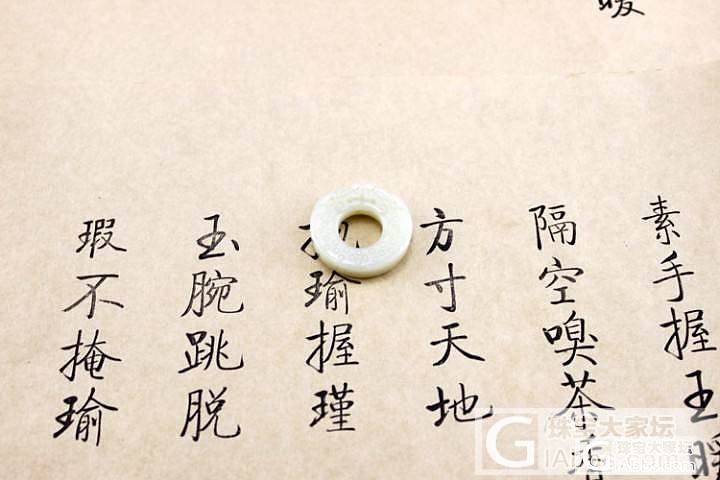 暖
素手握玉暖
隔空嗅茶香
方寸天地
瑜握瑾
玉腕跳脱
瑕不掩瑜
珠宝大家坛